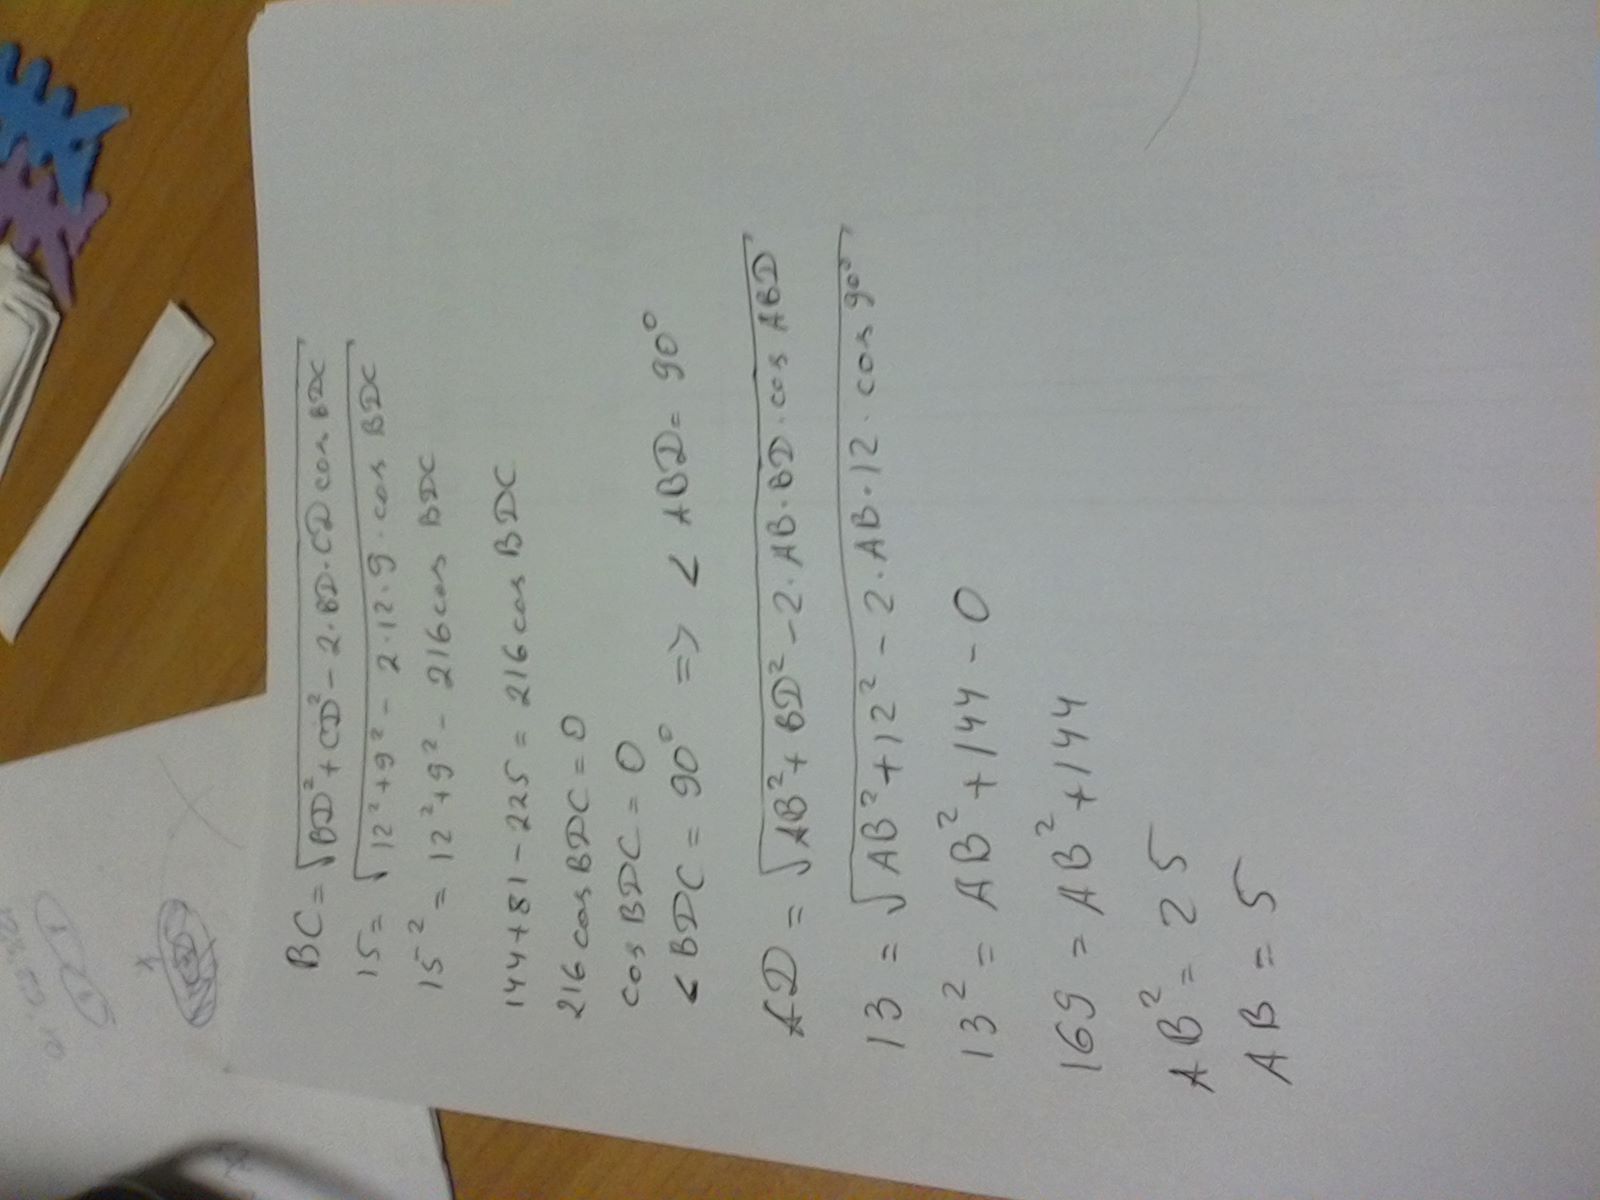 BC = √BD² + CD² - 2·BD·CD cos BDC
15 = √12² + 9² - 2·12·9·cos BDC
15² = 12² + 9² - 216 cos BDC
144 + 81 - 225 = 216 cos BDC
216 cos BDC = 0
cos BDC = 0
< BDC = 90° => < ABD = 90°
AD = √AB² + BD² - 2·AB·BD·cos ABD
13 = √AB² + 12² - 2·AB·12·cos 90°
13² = AB² + 144 - 0
169 = AB² + 144
AB² = 25
AB = 5